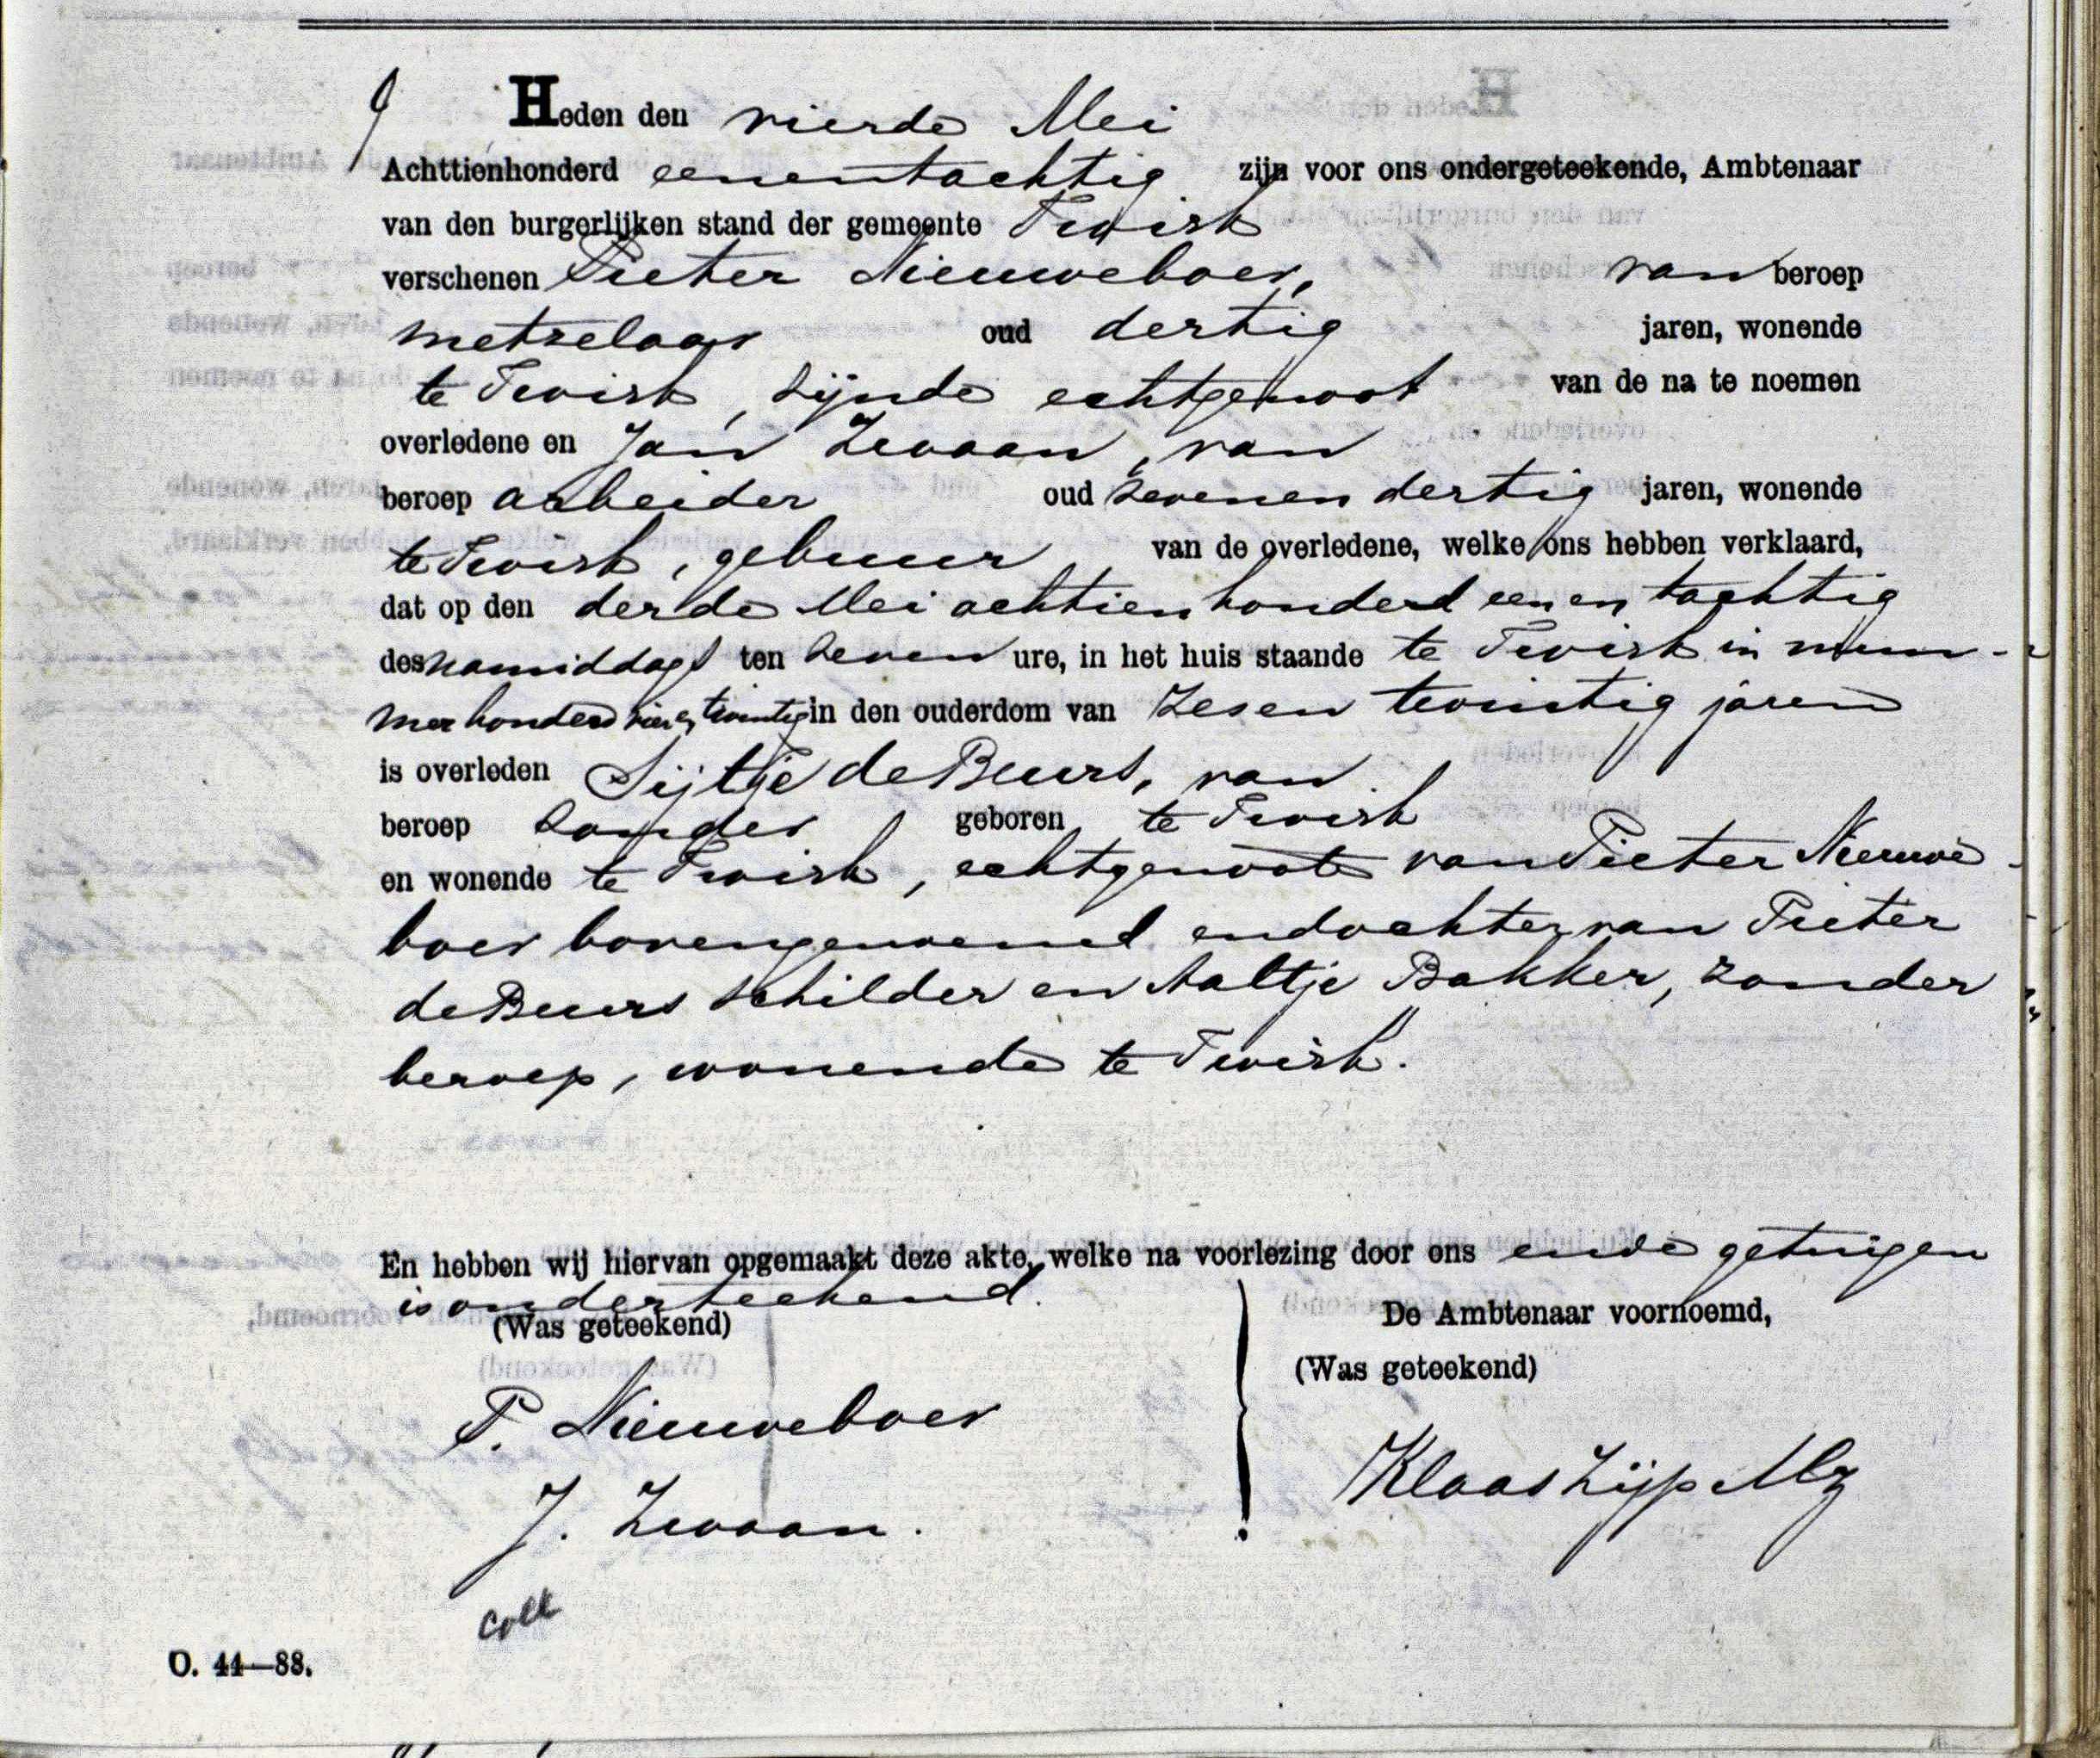 9 Heden den vierde Mei
Achttienhonderd eenentachtig zijn voor ons ondergeteekende, Ambtenaar
van den burgerlijken stand der gemeente Twisk
verschenen Pieter Nieuweboer, van beroep
metselaar oud dertig jaren, wonende
te Twisk, zijnde echtgenoot van de na te noemen
overledene en Jan Zwaan, van
beroep arbeider oud zevenendertig jaren, wonende
te Twisk, gebuur van de overledene, welke ons hebben verklaard,
dat op den derde Mei achtienhonderd een en tachtig
des namiddags ten zeven ure, in het huis staande te Twisk in num-
mer honderd vier en twintig in den ouderdom van zesen twintig jaren
is overleden Sijtje de Beurs, van
beroep zonder geboren te Twisk
en wonende te Twisk, echtgenoote van Pieter Nieuwe-
boer bovengenoemd en dochter van Pieter
de Beurs schilder en Aaltje Bakker, zonder
beroep, wonende te Twisk.
En hebben wij hiervan opgemaakt deze akte, welke na voorlezing door ons en de getuigen
is onderteekend.
(Was geteekend)
De Ambtenaar voornoemd,
(Was geteekend)
P. Nieuweboer
J. Zwaan.
Klaas Zijp Mz
Coll
O. 44—88.